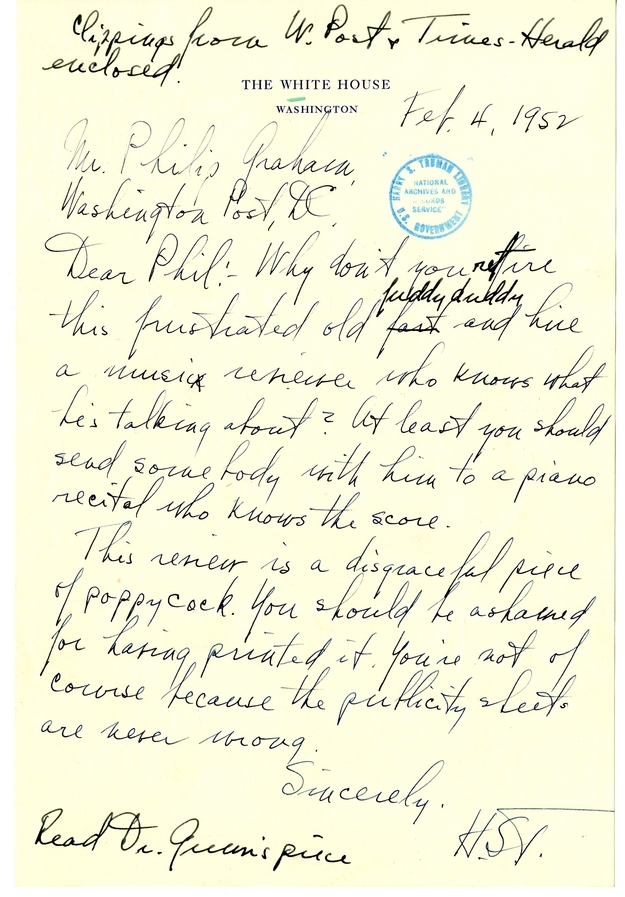 Clippings from W. Post & Times-Herald
enclosed.
THE WHITE HOUSE
WASHINGTON
Feb. 4, 1952
Mr. Philip Graham,
Washington Post, D.C.
HARRY S. TRUMAN LIBRARY
NATIONAL
ARCHIVES AND
RECORDS
SERVICE
U.S. GOVERNMENT
Dear Phil:- Why don't you retire
fuddy duddy
this frustrated old fart and hire
a music reviewer who knows what
he's talking about? At least you should
send somebody with him to a piano
recital who knows the score.
This review is a disgraceful piece
of poppycock. You should be ashamed
for having printed it. You're not of
course because the publicity sheets
are never wrong.
Sincerely.
H.S.T.
Read Dr. Gunn's piece